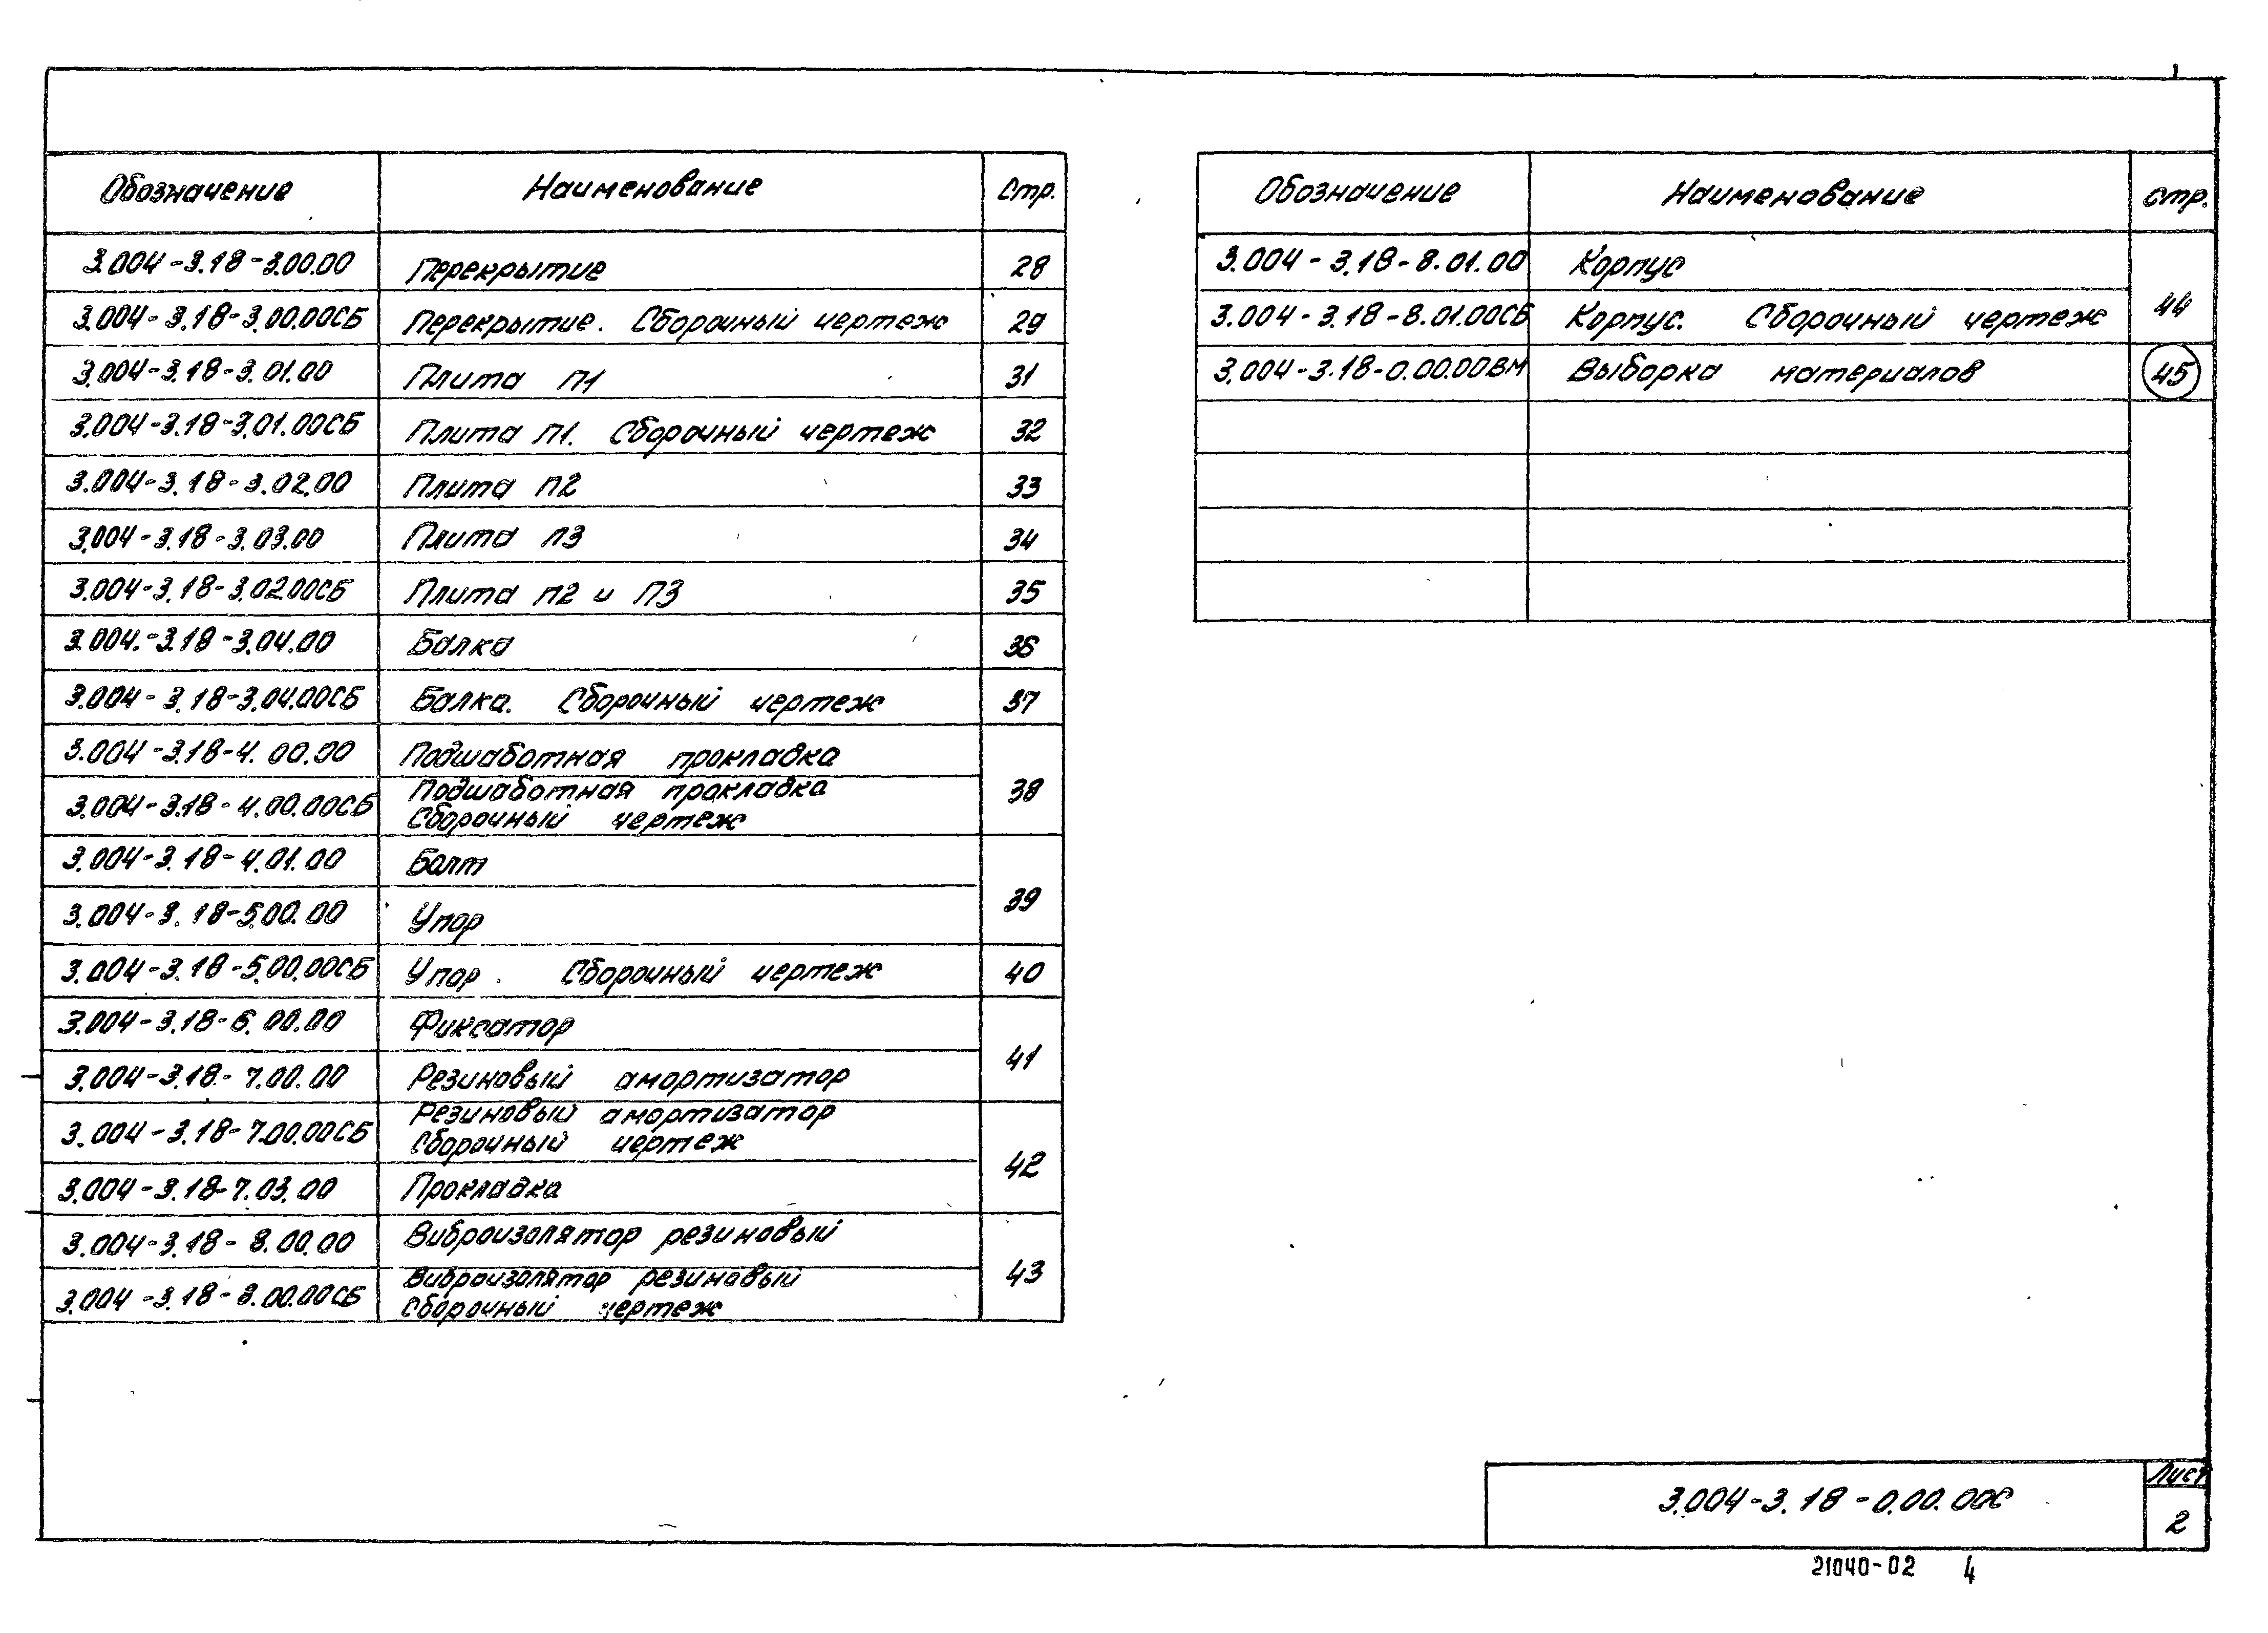 Обозначение Наименование Стр.
3.004-3.18-3.00.00 Перекрытие 28
3.004-3.18-3.00.00СБ Перекрытие. Сборочный чертеж 29
3.004-3.18-3.01.00 Плита П1 31
3.004-3.18-3.01.00СБ Плита П1. Сборочный чертеж 32
3.004-3.18-3.02.00 Плита П2 33
3.004-3.18-3.03.00 Плита П3 34
3.004-3.18-3.02.00СБ Плита П2 и П3 35
3.004.-3.18-3.04.00 Балка 36
3.004-3.18-3.04.00СБ Балка. Сборочный чертеж 37
3.004-3.18-4.00.00 Подшаботная прокладка
3.004-3.18-4.00.00СБ Подшаботная прокладка
Сборочный чертеж
38
3.004-3.18-4.01.00 Болт
3.004-3.18-5.00.00 Упор
39
3.004-3.18-5.00.00СБ Упор. Сборочный чертеж 40
3.004-3.18-6.00.00 Фиксатор
3.004-3.18-7.00.00 Резиновый амортизатор
41
3.004-3.18-7.00.00СБ Резиновый амортизатор
Сборочный чертеж
3.004-3.18-7.03.00 Прокладка
42
3.004-3.18-8.00.00 Виброизолятор резиновый
3.004-3.18-8.00.00СБ Виброизолятор резиновый
Сборочный чертеж
43
Обозначение Наименование Стр.
3.004-3.18-8.01.00 Корпус
3.004-3.18-8.01.00СБ Корпус. Сборочный чертеж
44
3.004-3.18-0.00.00ВМ Выборка материалов 45
3.004-3.18-0.00.00С
Лист
2
21040-02 4